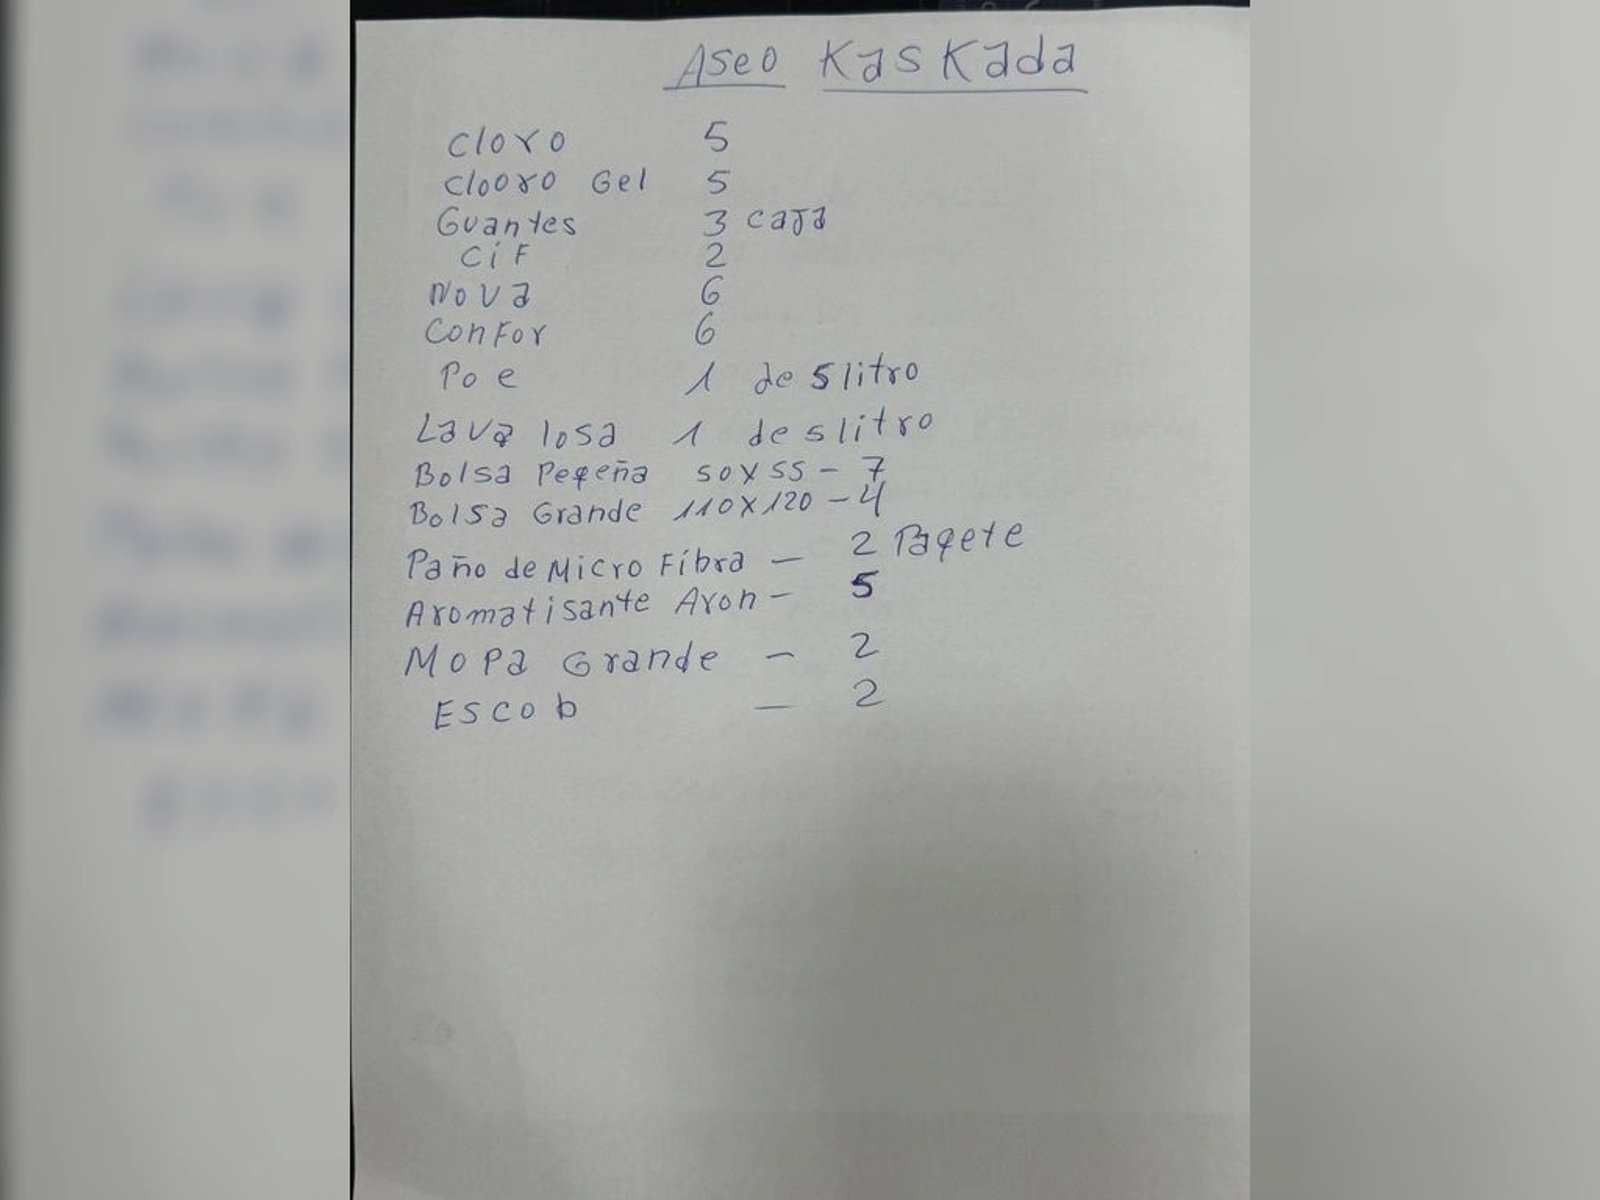 Aseo Kaskada
Cloro 5
Clooro Gel 5
Guantes 3 caja
Cif 2
Nova 6
Confor 6
Poe 1 de 5 litro
Lava losa 1 de 5 litro
Bolsa Peqeña 50x55 - 7
Bolsa Grande 110x120 - 4
Paño de Micro Fibra - 2 Paqete
Aromatisante Aron - 5
Mopa Grande - 2
Escob - 2